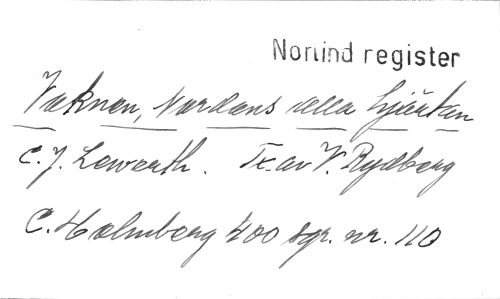 Norlind register
Vaknen, Nordens alla hjärtan
C. J. Lewerth. Tx. av V. Rydberg
C. Holmberg 400 sgr. nr. 110